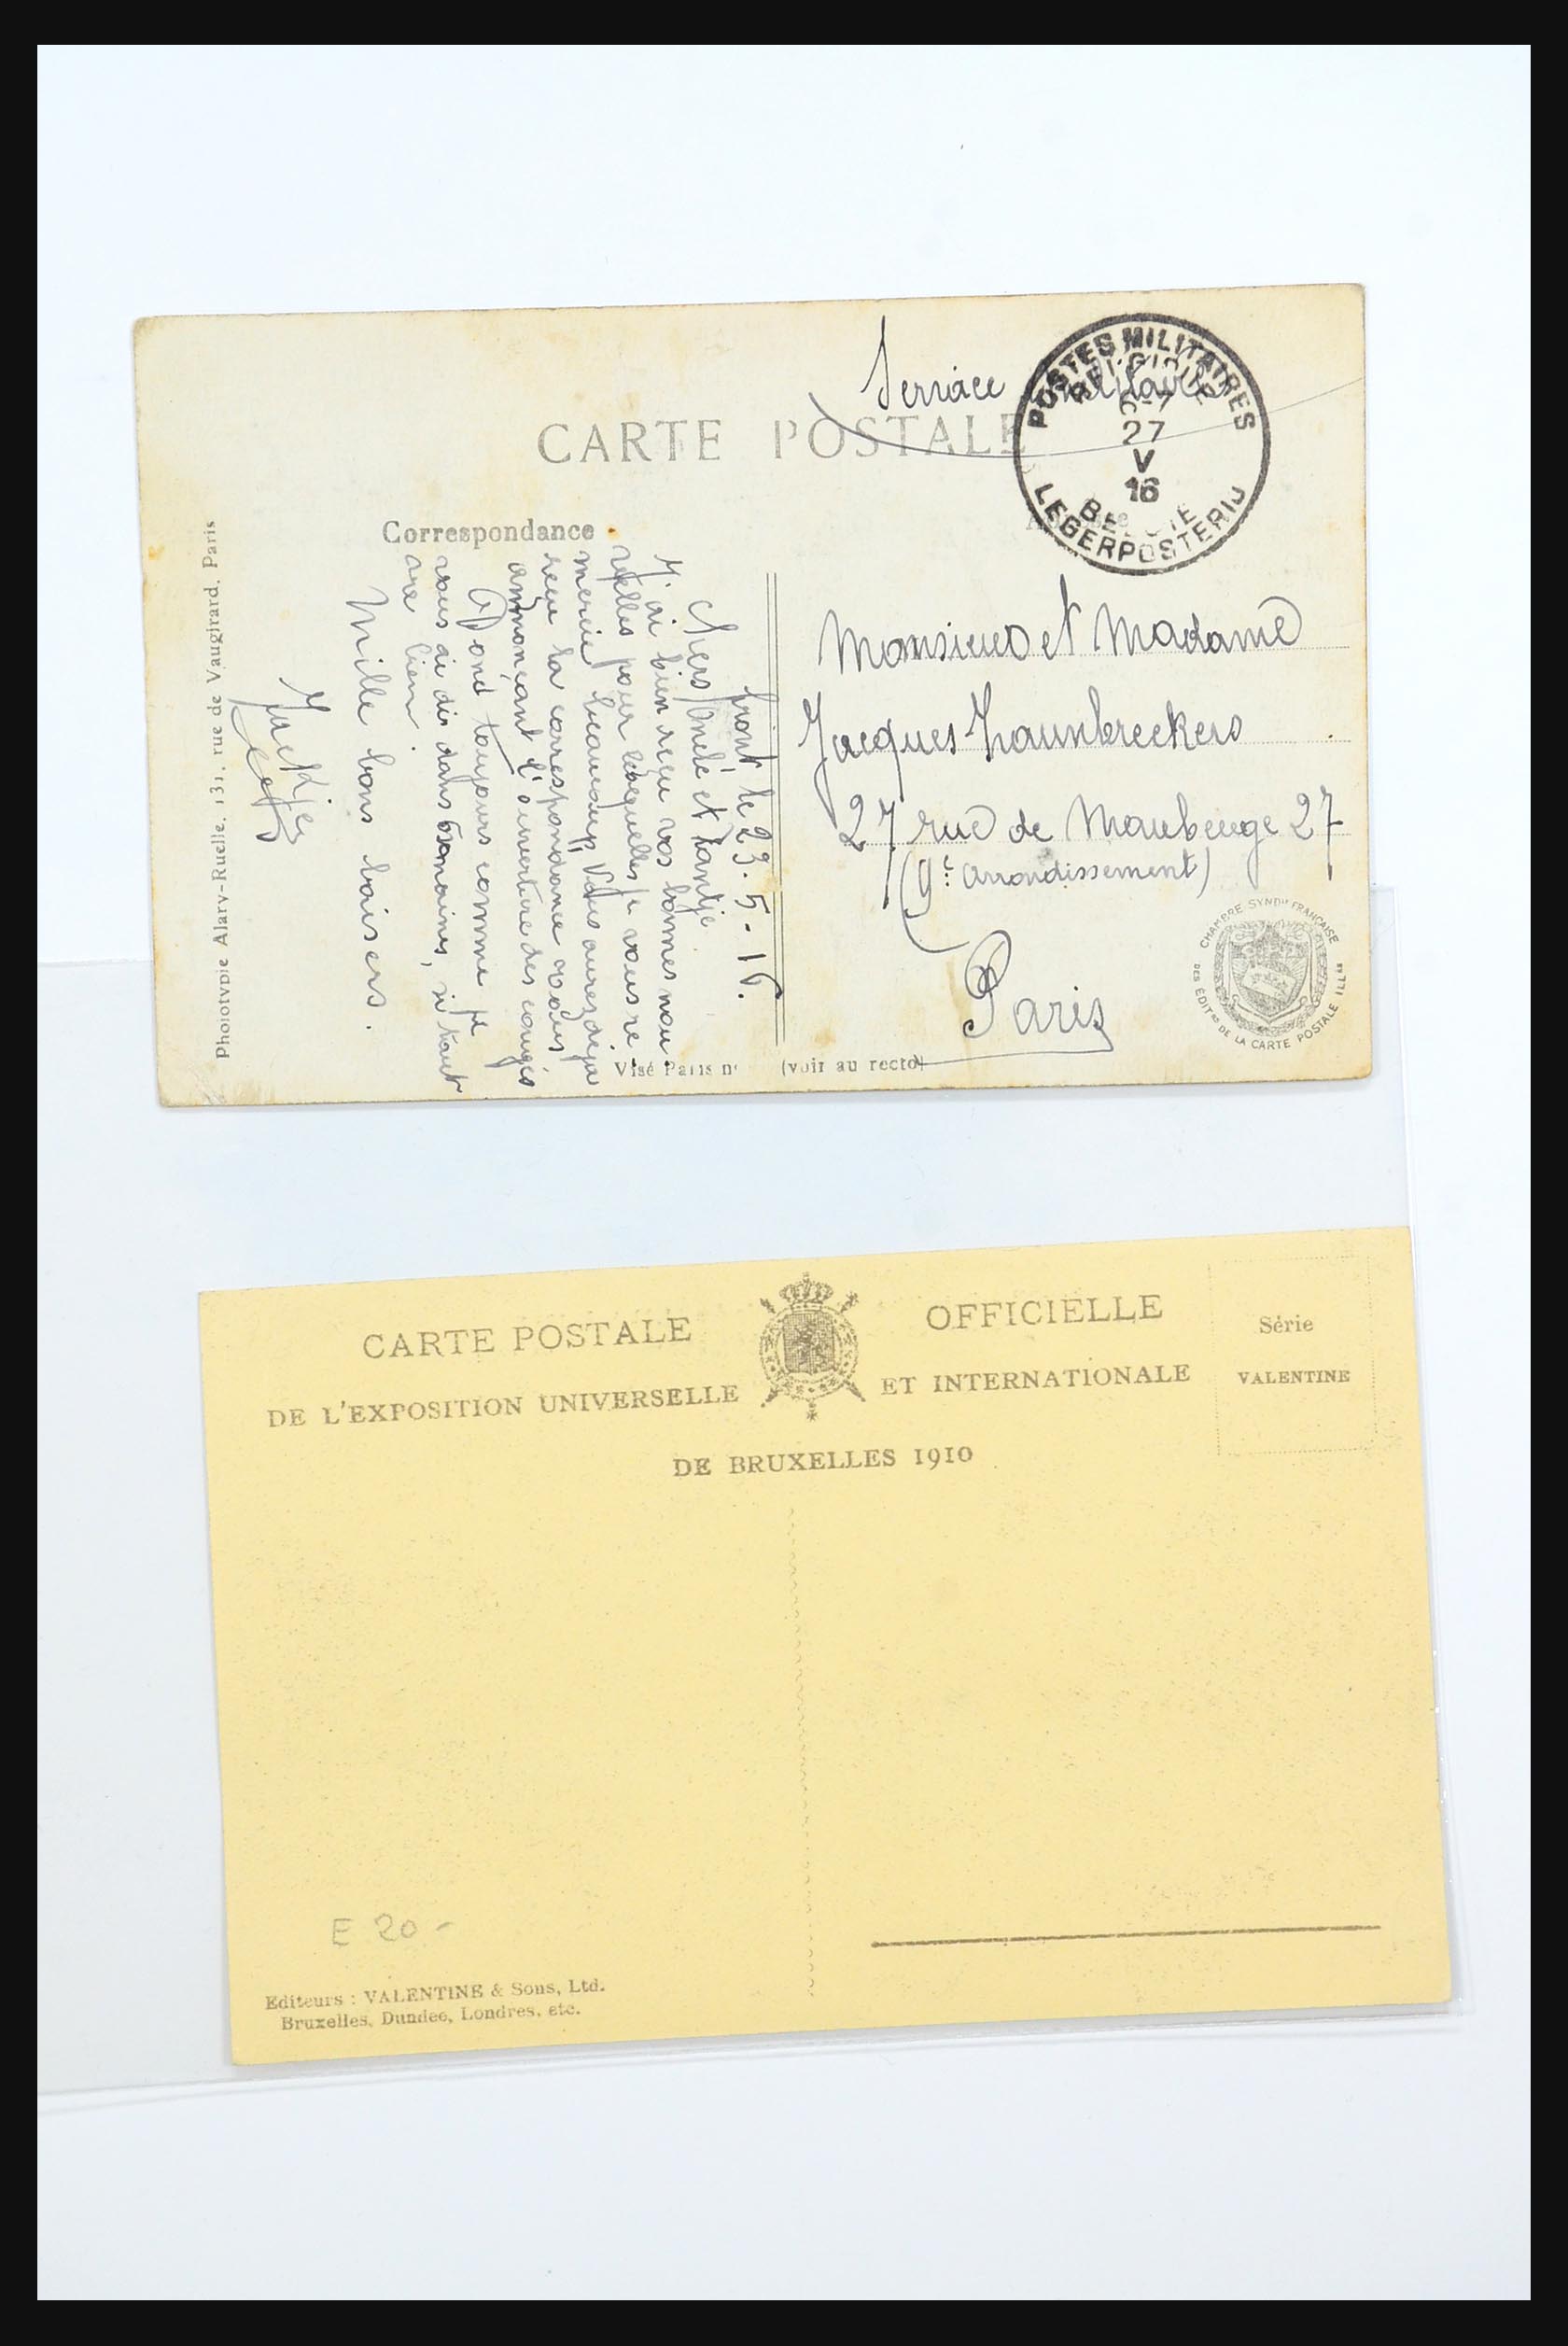 Service militaire
CARTE POSTALE
POSTES MILITAIRES
BELGIQUE
27
V
16
LEGERPOSTERIJ
Correspondance
Phototypie Alary-Ruelle, 131, rue de Vaugirard, Paris
front, le 23-5-16.
Chers Oncle et Tantje
J'ai bien reçu vos bonnes nou
velles pour lesquelles je vous re
mercie beaucoup, Vous aurez déja
reçu la correspondance vous
annonçant l'ouverture des congés
Donc toujours comme je
vous ai dis dans 6 semaines, si tout
va bien.
Mille bons baisers.
Monsieur et Madame
Jacques
27 rue de Maubeuge 27
(9e arrondissement)
Paris
CHAMBRE SYNDle FRANÇAISE
DES EDITrs DE LA CARTE POSTALE ILLée
Visé Paris no (voir au recto)
CARTE POSTALE OFFICIELLE
DE L'EXPOSITION UNIVERSELLE ET INTERNATIONALE
DE BRUXELLES 1910
Série
VALENTINE
E 20-
Editeurs : VALENTINE & Sons, Ltd.
Bruxelles, Dundee, Londres, etc.